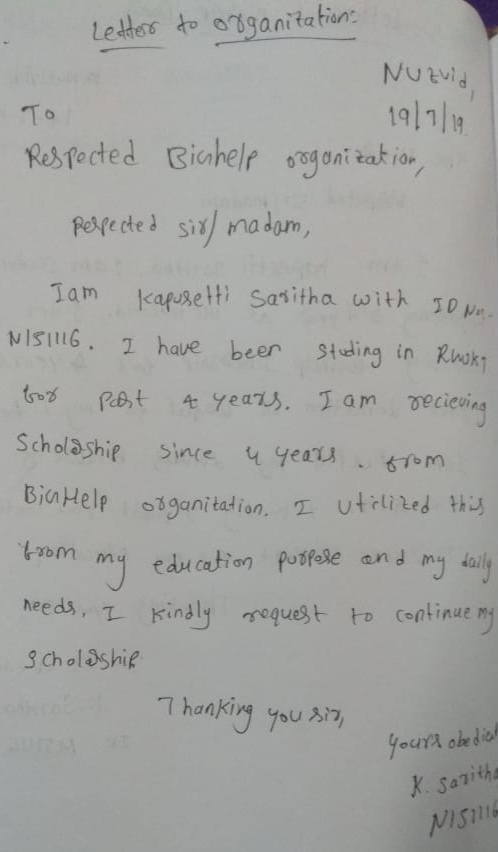 Letter to organization:
Nuzvid,
To
19/7/19.
Respected Bicnhelp organization,
Respected sir/madam,
Iam Kapusetti Saritha with ID No.
N151116. I have been Studing in
for past 4 years. I am recieving
Scholarship since 4 years. from
BicnHelp organization. I utilized this
from my education purpose and my daily
needs. I kindly request to continue my
Scholarship
Thanking you sir,
yours obedient
K. Saritha
N151116